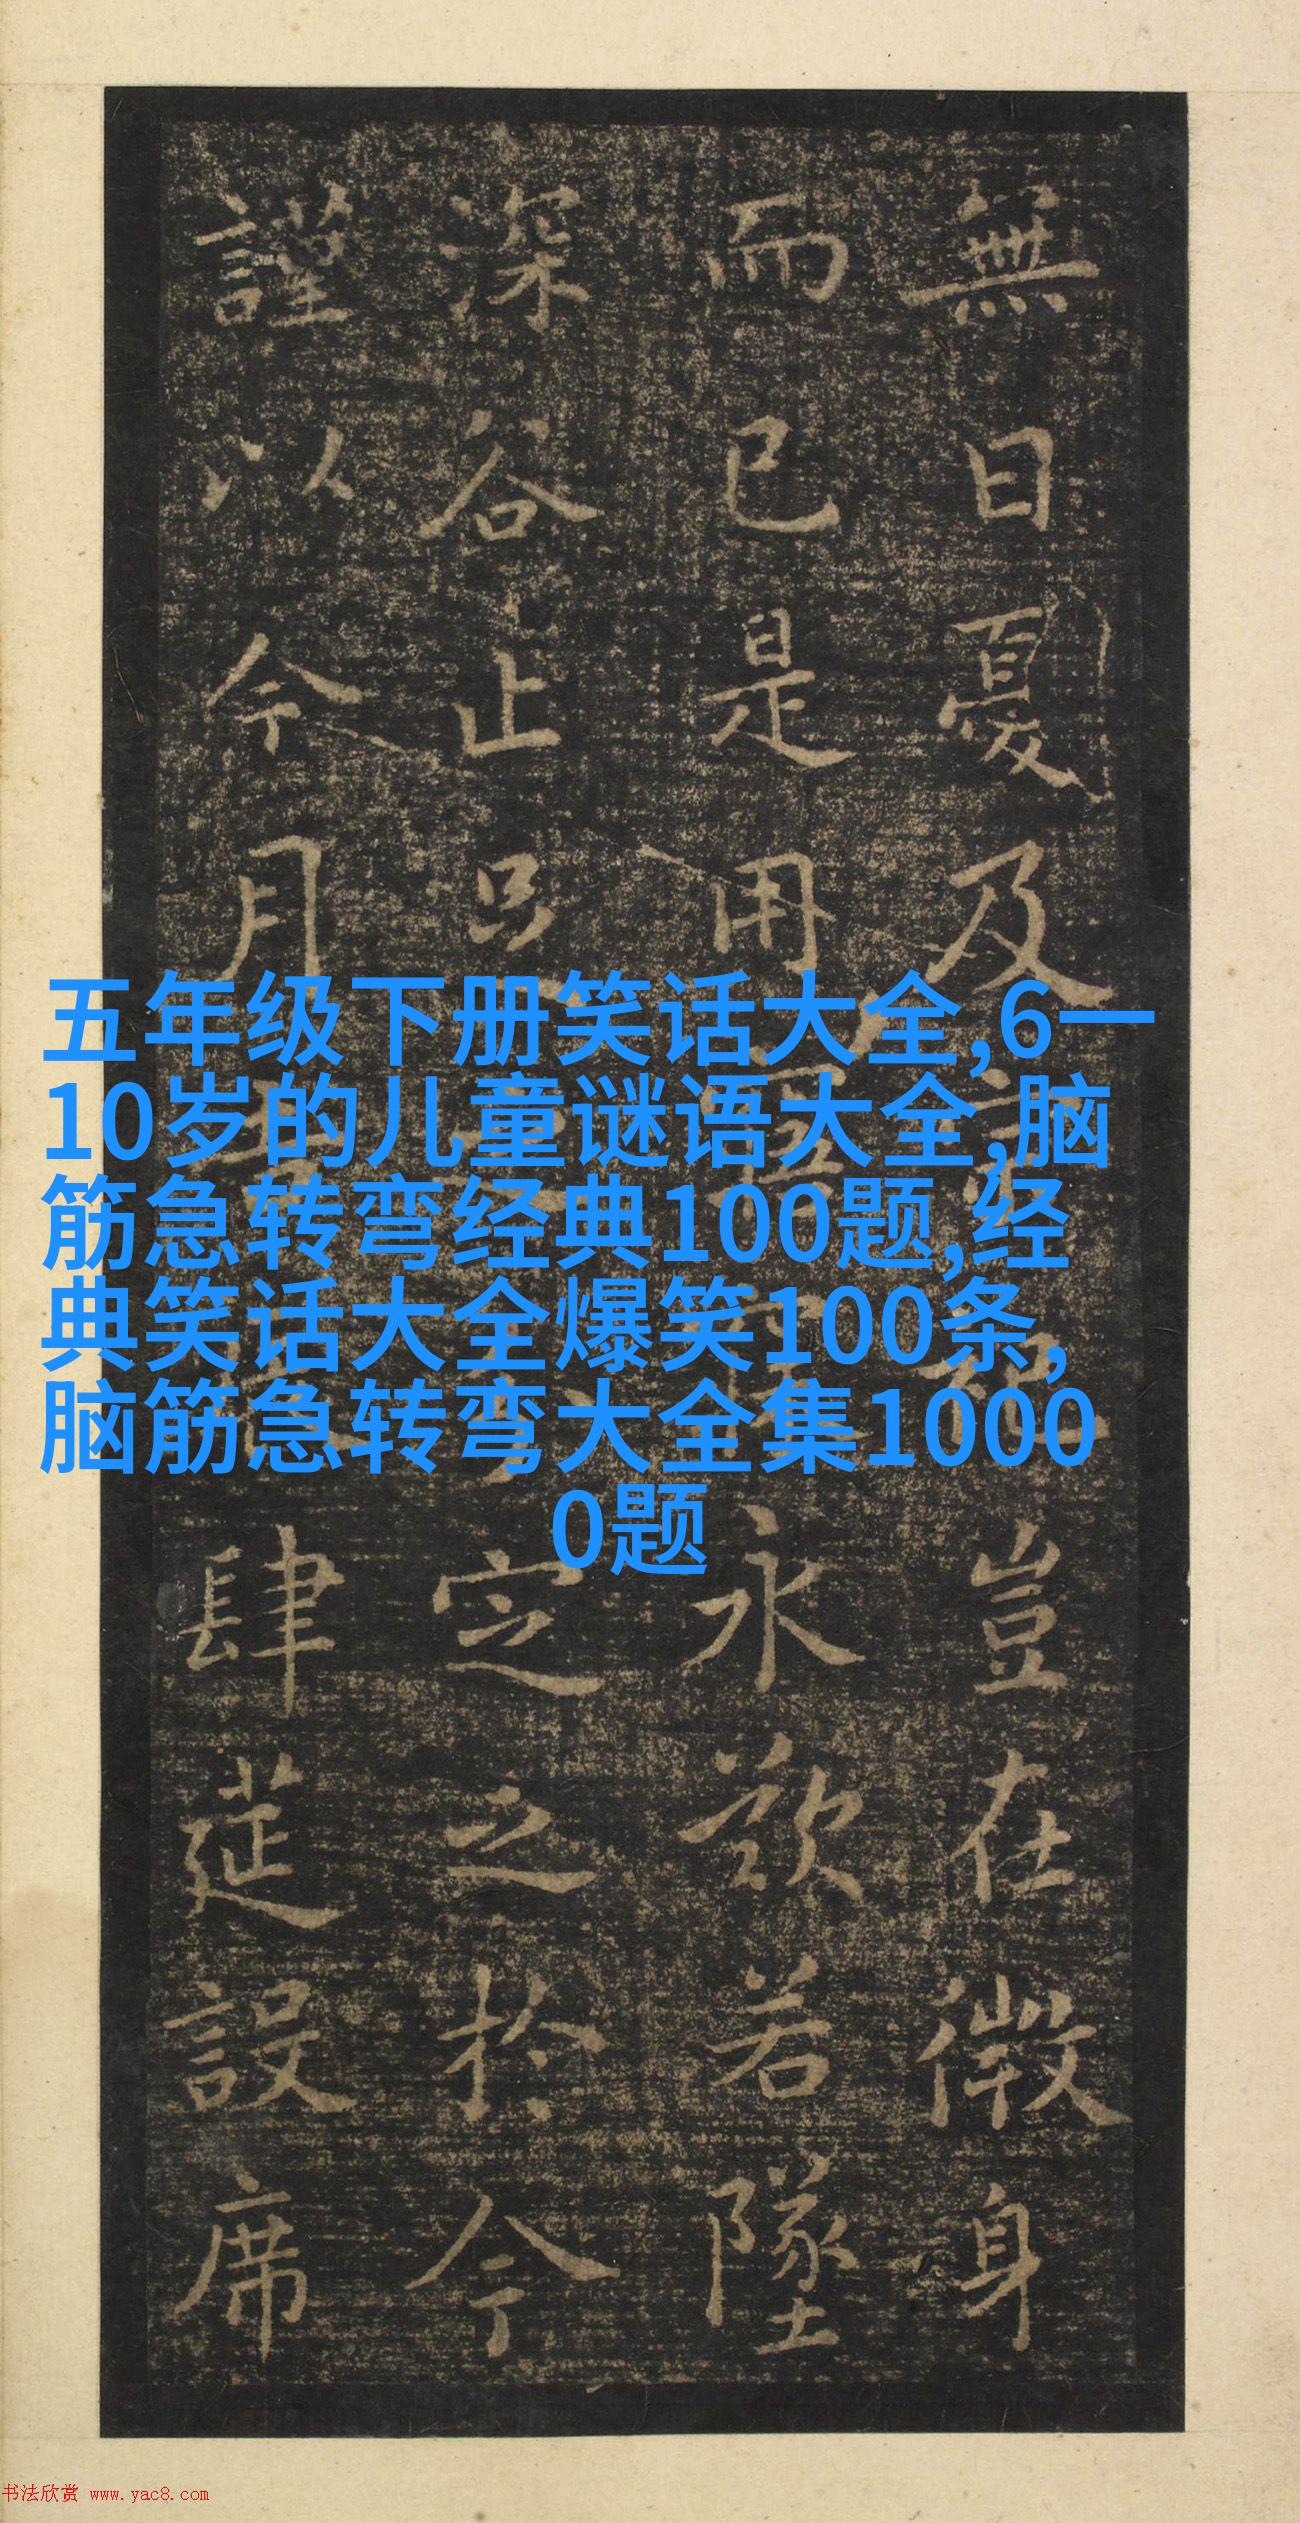 無日憂及豈在微身
而已是用永歎若墜
深谷止定之於今
謹以今月肆莚設席
五年级下册笑话大全,6一
10岁的儿童谜语大全,脑
筋急转弯经典100题,经
典笑话大全爆笑100条,
脑筋急转弯大全集1000
0题
书法欣赏 www.yac8.com